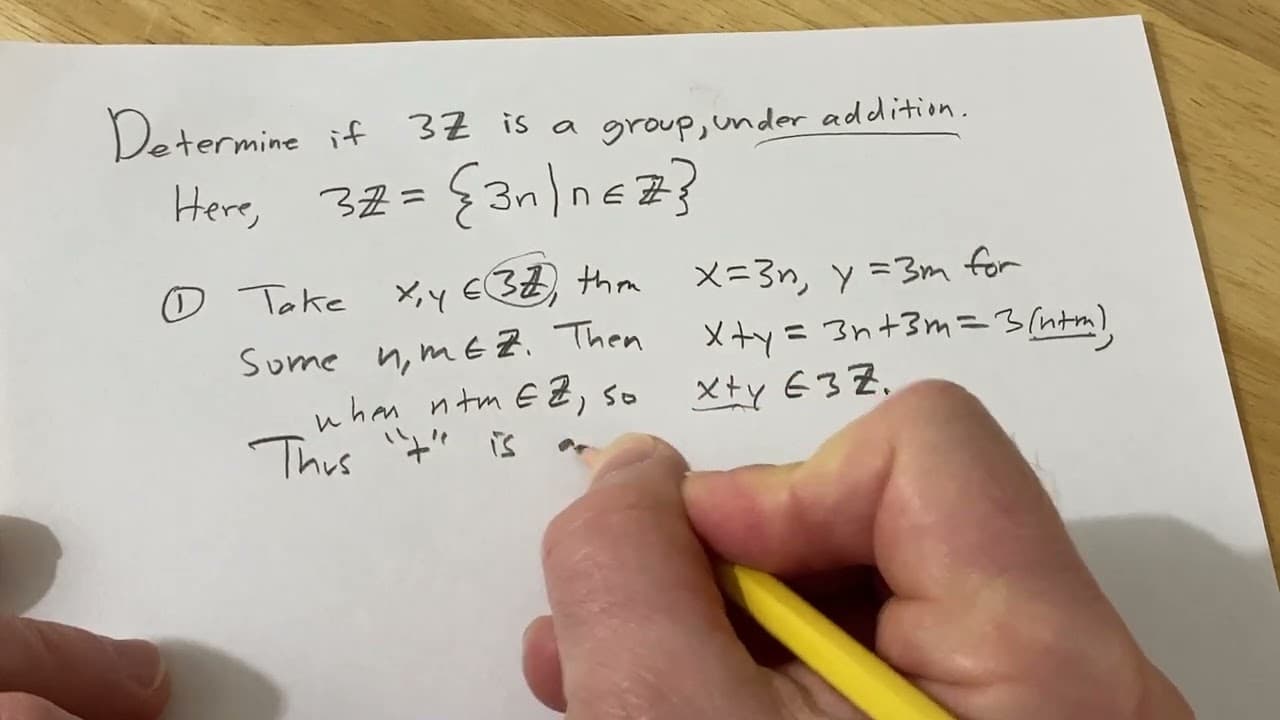 Determine if 3ℤ is a group, under addition.
Here, 3ℤ = {3n | n ∈ ℤ}
① Take x, y ∈ 3ℤ, then x = 3n, y = 3m for
some n, m ∈ ℤ. Then x + y = 3n + 3m = 3(n+m),
when n + m ∈ ℤ, so x + y ∈ 3ℤ.
Thus "+" is a